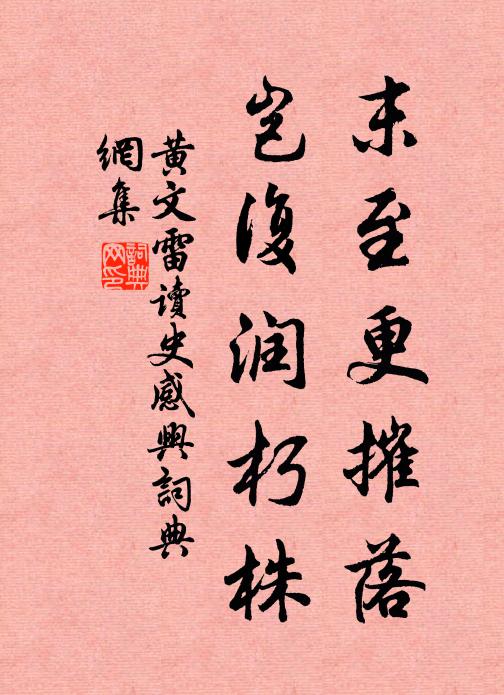 末至更摧落
岂復润朽株
黄文雷讀史感興詞典
網集
詞典
网印